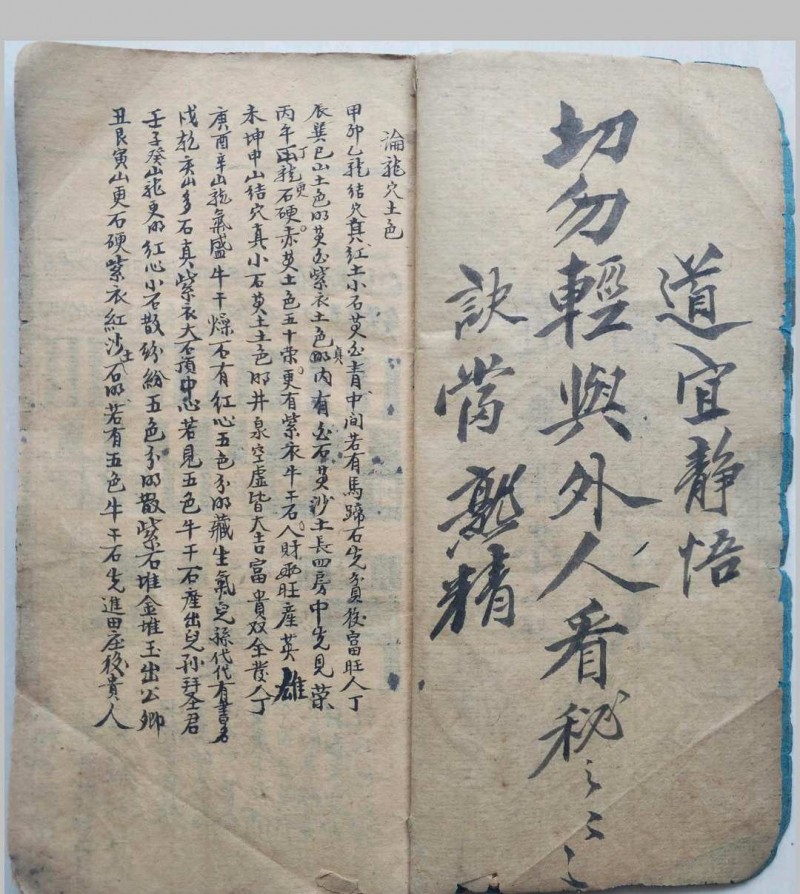 道宜静悟
切勿輕與外人看秘之之之
訣當熟精
論龍穴土色
甲卯乙龍結穴真紅土小石黄白青中间若有馬蹄石先貧後富旺人丁
辰巽巳山土色明黄白紫衣土色明内有白石黄沙土長四房中先見榮
丙午丁龍石更硬赤黄土色五十荣更有紫衣牛干石人財両旺産英雄
未坤申山结穴真小石黄土土色明井泉空虚皆大吉富貴双全發人丁
庚酉辛山龍氣盛牛干燥石有红心五色分明藏生氣兒孫代代有書名
戌乾亥山多石真紫衣大石頂中心若見五色牛干石産出兒孙拜圣君
壬子癸山龍更明红心小石散紛紛五色分明散紫石堆金堆玉出公卿
丑艮寅山更石硬紫衣紅沙土石明若有五色牛干石先進田庄後貴人